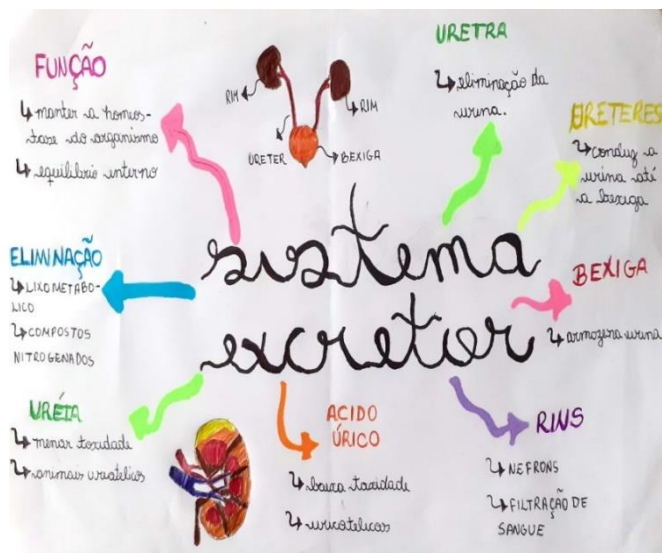 FUNÇÃO
manter a homeos-
tase do organismo
equilíbrio interno
RIM
RIM
URETER
BEXIGA
URETRA
eliminação da
urina.
URETERES
conduz a
urina até
a bexiga
sistema
excretor
ELIMINAÇÃO
LIXO METABO-
LICO
COMPOSTOS
NITROGENADOS
BEXIGA
armazena urina
URÉIA
menor toxidade
animais ureotélicos
ACIDO
ÚRICO
baixa toxidade
uricotelicos
RINS
NEFRONS
FILTRAÇÃO DE
SANGUE